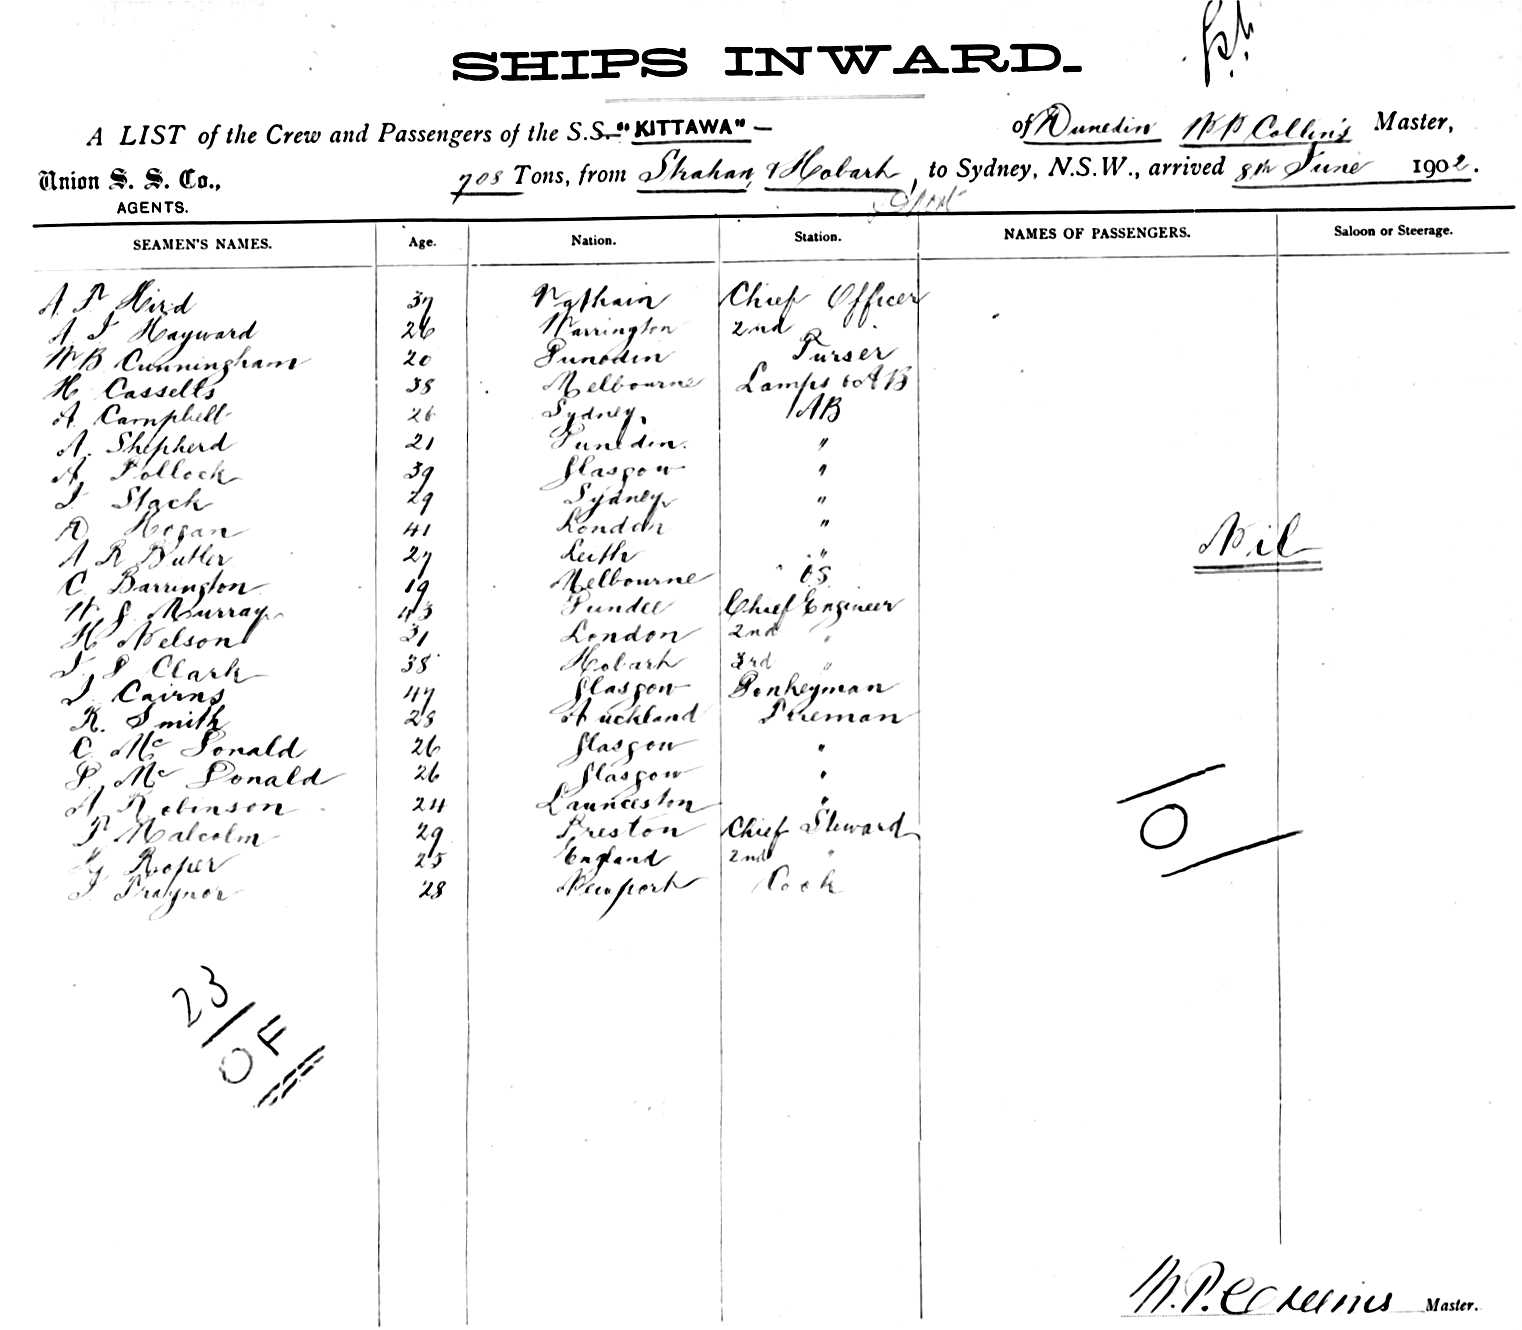 SHIPS INWARD.
A LIST of the Crew and Passengers of the S.S. "KITTAWA" of Dunedin W P Collins Master,
Union S. S. Co., 708 Tons, from Strahan, & Hobart, to Sydney, N.S.W., arrived 8th June 1902.
AGENTS.
SEAMEN'S NAMES. Age. Nation. Station. NAMES OF PASSENGERS. Saloon or Steerage.
A F Hird 37 Chief Officer
A J Hayward 26 Warrington 2nd "
W B Cunningham 20 Dunedin Purser
H Cassells 38 Melbourne Lamps & AB
A Campbell 26 Sydney AB
A. Shepherd 21 Dunedin. "
A Pollock 39 Glasgow "
J Stack 29 Sydney "
R Hogan 41 London "
A R Butler 27 Leith "
C Barrington 19 Melbourne OS
W G Murray 43 Dundee Chief Engineer
H Nelson 31 London 2nd "
J P Clark 38 Hobart 3rd "
J Cairns 47 Glasgow Donkeyman
R. Smith 28 Auckland Fireman
C Mc Donald 26 Glasgow "
P. Mc Donald 26 Glasgow "
A Robinson 24 Launceston "
P Malcolm 29 Preston Chief Steward
Roper 25 England 2nd "
J. Traynor 28 Newport Cook
Nil
0
23
OF
W.P. Collins Master.